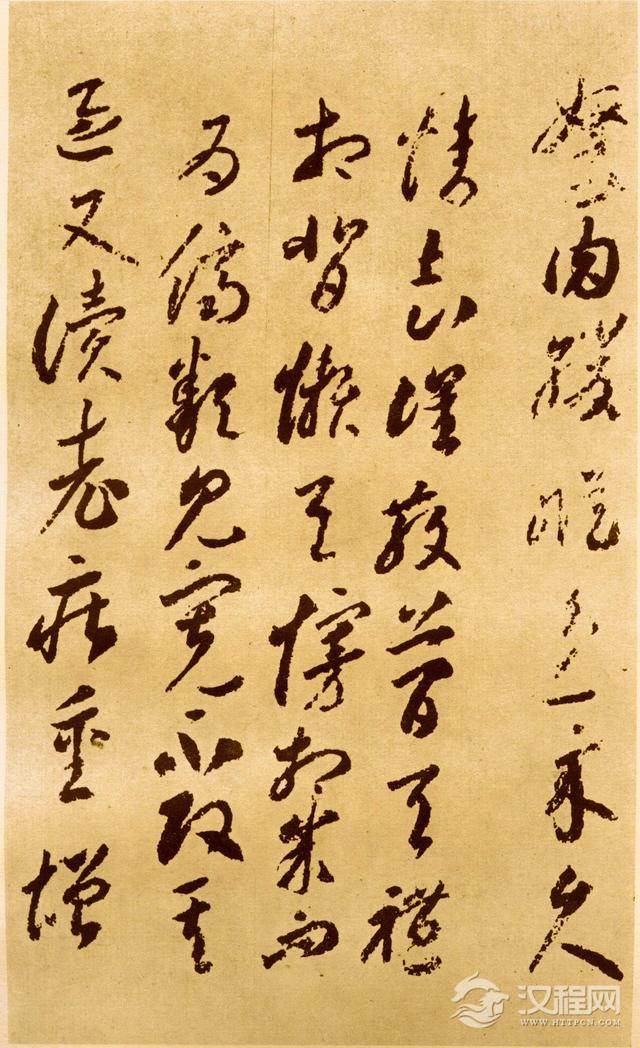 駑肉緩縱逸來久
情意傲散簡與禮
相背懶與慢相成而
為儕類見寬不攻其
過又讀老莊重增
汉程网
WWW.HTTPCN.COM